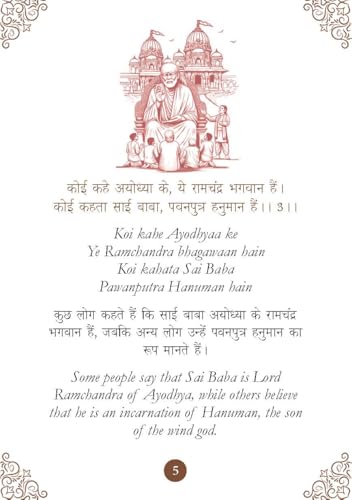 कोई कहे अयोध्या के, ये रामचंद्र भगवान हैं।
कोई कहता साई बाबा, पवनपुत्र हनुमान हैं।। 3।।
Koi kahe Ayodhyaa ke
Ye Ramchandra bhagawaan hain
Koi kahata Sai Baba
Pawanputra Hanuman hain
कुछ लोग कहते हैं कि साई बाबा अयोध्या के रामचंद्र
भगवान हैं, जबकि अन्य लोग उन्हें पवनपुत्र हनुमान का
रूप मानते हैं।
Some people say that Sai Baba is Lord
Ramchandra of Ayodhya, while others believe
that he is an incarnation of Hanuman, the son
of the wind god.
5